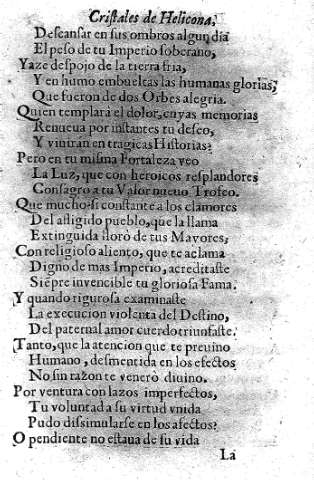 Cristales de Helicona,
Descansar en sus ombros algun dia
El peso de tu Imperio soberano,
Yaze despojo de la tierra fria,
Y en humo embueltas las humanas glorias,
Que fueron de dos Orbes alegria.
Quien templarà el dolor, cuyas memorias
Renueua por instantes tu deseo,
Y viuiràn en tragicas Historias?
Pero en tu misma Fortaleza veo
La Luz, que con heroicos resplandores
Consagro a tu Valor nueuo Trofeo.
Que mucho, si constante a los clamores
Del afligido pueblo, que la llama
Extinguida llorò de tus Mayores,
Con religioso aliento, que te aclama
Digno de mas Imperio, acreditaste
Siẽpre inuencible tu gloriosa Fama.
Y quando rigurosa examinaste
La execucion violenta del Destino,
Del paternal amor cuerdo triunfaste.
Tanto, que la atencion que te preuino
Humano, desmentida en los efectos
No sin razon te venerò diuino.
Por ventura con lazos imperfectos,
Tu voluntad a su virtud vnida
Pudo dissimularse en los afectos?
O pendiente no estaua de su vida
La